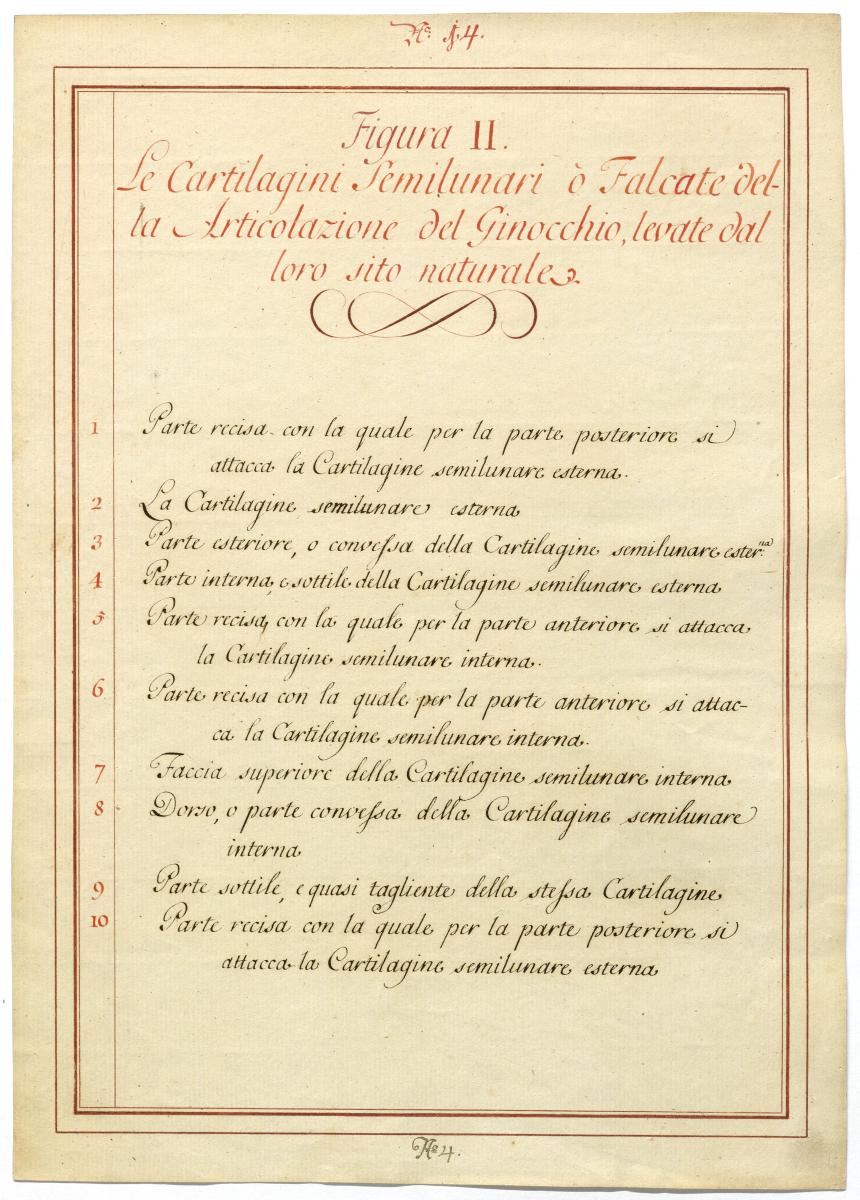 Nº. 14.
Figura II.
Le Cartilagini Semilunari ò Falcate del-
la Articolazione del Ginocchio, levate dal
loro sito naturale.
1 Parte recisa con la quale per la parte posteriore si
attacca la Cartilagine semilunare esterna.
2 La Cartilagine semilunare esterna
3 Parte esteriore, o convessa della Cartilagine semilunare ester.na
4 Parte interna, e sottile della Cartilagine semilunare esterna
5 Parte recisa, con la quale per la parte anteriore si attacca
la Cartilagine semilunare interna.
6 Parte recisa con la quale per la parte anteriore si attac-
ca la Cartilagine semilunare interna.
7 Faccia superiore della Cartilagine semilunare interna
8 Dorso, o parte convessa della Cartilagine semilunare
interna
9 Parte sottile, e quasi tagliente della stessa Cartilagine
10 Parte recisa con la quale per la parte posteriore si
attacca la Cartilagine semilunare esterna
Nº 4.